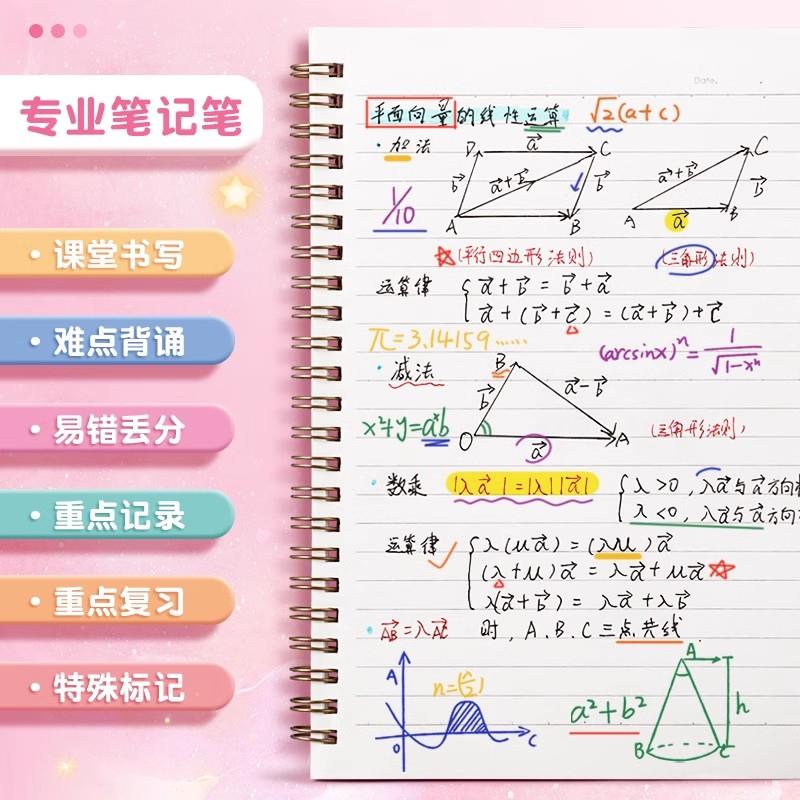 专业笔记笔
• 课堂书写
• 难点背诵
• 易错丢分
• 重点记录
• 重点复习
• 特殊标记
Date.
平面向量的线性运算 √2(a+c)
• 加法
D a⃗ C
b⃗ a⃗+b⃗ b⃗
A B
C
a⃗+b⃗ b⃗
A a⃗ B
1/10
☆(平行四边形法则) (三角形法则)
运算律 { a⃗+b⃗=b⃗+a⃗
a⃗+(b⃗+c⃗)=(a⃗+b⃗)+c⃗
π=3.14159......
(arcsinx)ⁿ=1/√(1-xⁿ)
• 减法
B
b⃗ a⃗-b⃗
O a⃗ A
x²+y=aˣb
(三角形法则)
• 数乘 |λa⃗|=|λ||a⃗| { λ>0, λa⃗与a⃗方向
λ<0, λa⃗与a⃗方向
运算律 { λ(μa⃗)=(λμ)a⃗
(λ+μ)a⃗=λa⃗+μa⃗☆
λ(a⃗+b⃗)=λa⃗+λb⃗
• AB⃗=λAC⃗ 时, A.B.C三点共线.
A
O C
a²+b²
A
h
B C